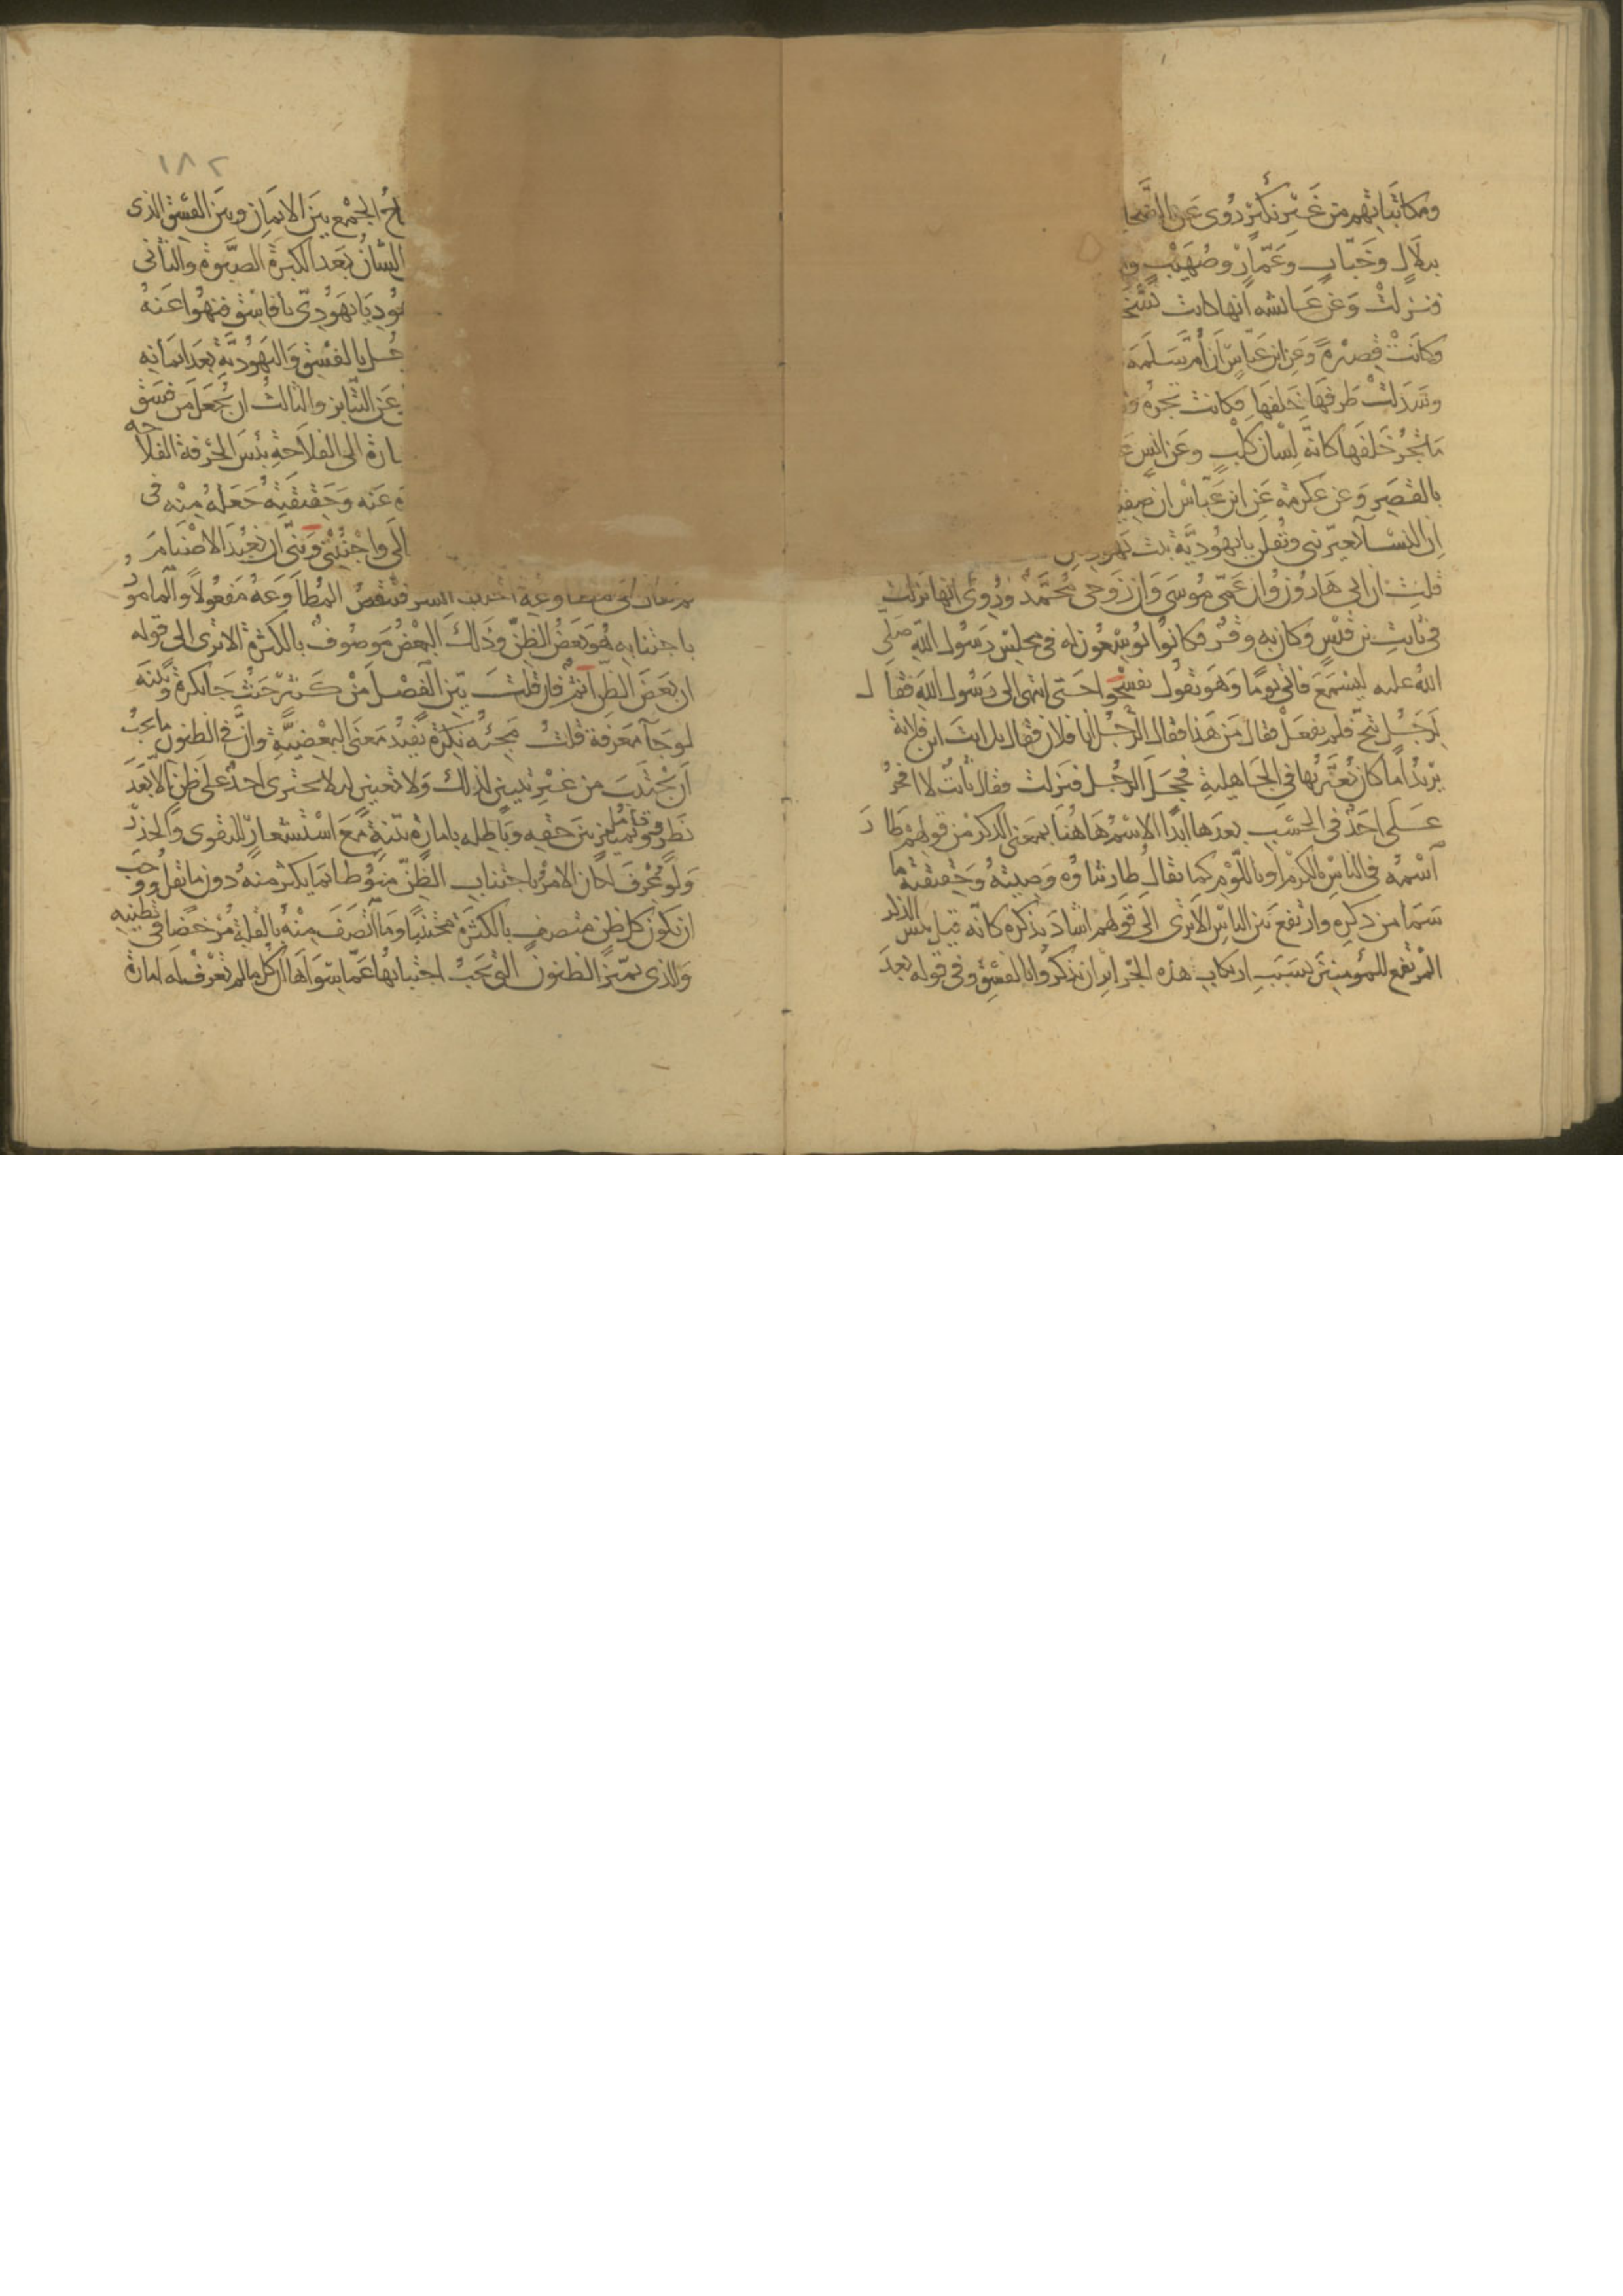 ومكاتباتهم من غير نكير روى عن الضحا
بلال وخباب وعمار وصهيب و
فنزلت وعن عائشه انها كانت تسخ
وكانت قصيرة وعن ابن عباس ان أم سلمة
وسدلت طرفها خلفها فكانت تجره
ما تجر خلفها كانه لسان كلب وعن انس
بالقصر وعن عكرمة عن ابن عباس ان صفي
ان النسآ يعيرننى ويقلن يا يهودية بنت يهوديين
قلت ان ابى هارون وان عمى موسى وان زوجى محمد وروى انها نزلت
فى ثابت بن قيس وكان به وقر فكانوا يوسعون له فى مجلس رسول الله صلى
الله عليه ليسمع فاتى يوما وهو يقول تفسحوا حتى انتهى الى رسول الله فقال
لرجل تنح فلم يفعل فقال من هذا فقال الرجل انا فلان فقال بل انت ابن فلانة
يريد أما كان يعير بها فى الجاهلية فخجل الرجل فنزلت فقال ثابت لا افخر
على احد فى الحسب بعدها ابدا الاسم هاهنا بمعنى الذكر من قولهم طار
اسمه فى الناس بالكرم او باللوم كما يقال طار ثناؤه وصيته وحقيقته ما
سما من ذكره وارتفع بين الناس الا ترى الى قولهم اشاد بذكره كانه قيل بئس الذكر
المرتفع للمؤمنين بسبب ارتكاب هذه الجرائر ان يذكروا بالفسق وفى قوله بعد
١٨٢
اح الجمع بين الايمان وبين الفسق الذى
الشان بعد الكبرة الصبوة والثانى
يهود يا يهودى يا فاسق فنهوا عنه
جل بالفسق واليهودية بعد ايمانه
عن التنابز والثالث ان يجعل من فسق
ارة الى الفلاحة بئس الحرفة الفلاحه
ه عنه وحقيقته جعله منه فى
الى واجنبنى وبنى ان نعبد الاصنام
ثم يقال فى مطاوعه اجتنب الشر فتنقص المطاوعة مفعولا والمامور
باجتنابه هو بعض الظن وذلك البعض موصوف بالكثرة الا ترى الى قوله
ان بعض الظن اثم فان قلت بين الفصل من كثير حيث جا نكرة وبينه
لو جآ معرفة قلت مجيئه نكرة يفيد معنى البعضية وان فى الظنون ما يجب
ان يجتنب من غير تبيين لذلك ولا تعيين لئلا يجترى احد على ظن الا بعد
نظر وتامل وتمييز بين حقه وباطله بامارة بينة مع استشعار للتقوى والحذر
ولو عرف لكان الامر باجتناب الظن منوطا بما يكثر منه دون ما يقل ووجب
ان يكون كل ظن متصف بالكثرة مجتنبا وما اتصف منه بالقلة مرخصا فى تظنيه
والذى يميز الظنون التى يجب اجتنابها عما سواها ان كل ما لم تعرف له امارة